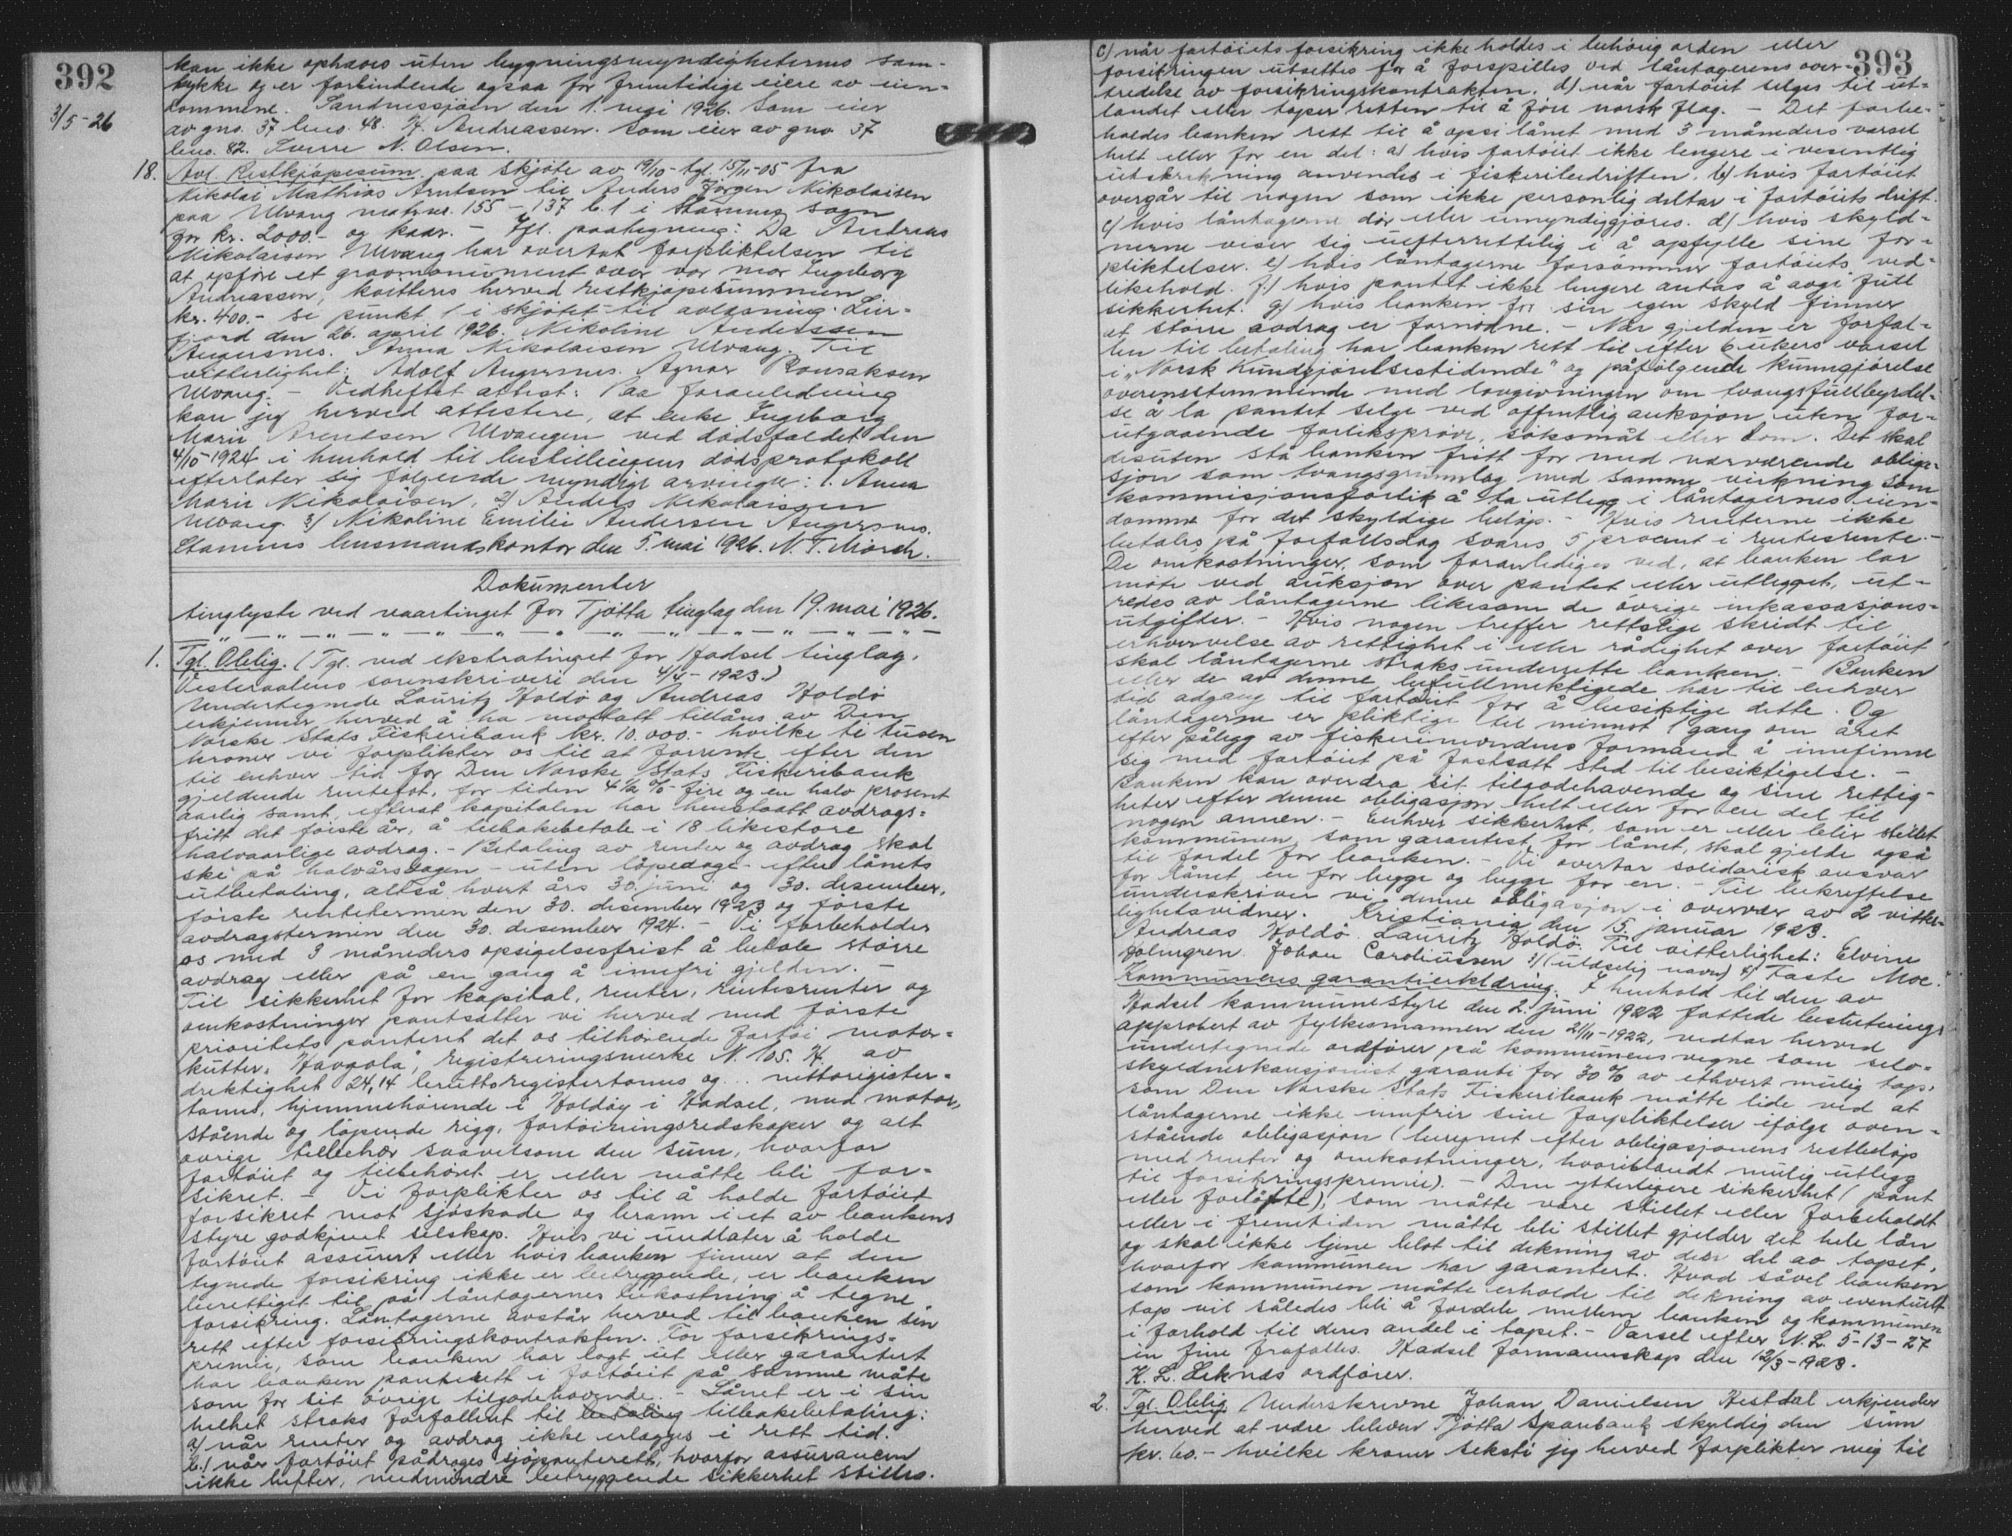 392
3/5-26
kan ikke ophæves uten bygningsmyndigheternes sam-
tykke og er forbindende ogsaa for fremtidige eiere av eien-
dommene. Sandnessjøen den 1. mai 1926. Som eier
av gno. 37 bno. 48. H. Andreassen. Som eier av gno 37
bno. 82. Sverre N. Olsen.
18. Avl. Restkjøpesum paa skjøte av 19/10 - tgl. 15/11-05 fra
Nikolai Mathias Arntsen til Anders Jørgen Nikolaisen
paa Ulvang matr.nr. 155 - 137 b. 1 i Stamnes sogn
for kr. 2000.- og kaar. - Tgl. paategning: Da Andreas
Nikolaisen Ulvang har overtat forpliktelsen til
at opføre et gravmonument over vor mor Ingeborg
Andreassen, kvitteres herved restkjøpesummen
kr. 400.- se punkt 1 i skjøtet til avlysning. Leir-
fjord den 26. april 1926. Nikoline Anderssen
Angersnes. Anna Nikolaisen Ulvang. Til
vitterlighet: Adolf Angersnes. Agnar Ronsaksen
Ulvang. - Vedheftet attest: Paa foranledning
kan jeg herved attestere, at enke Ingeborg
Marie Arentsen Ulvangen ved dødsfaldet den
4/10-1924 i henhold til bestillingens dødsprotokoll
efterlater sig følgende myndige arvinger: 1. Anna
Marie Nikolaisen, 2) Anders Nikolaissen
Ulvang 3) Nikoline Emilie Andersen Angersnes.
Stamnes lensmandskontor den 5. mai 1926. N. T. Mörch.
Dokumenter
tinglyste ved vaartinget for Tjøtta tinglag den 19. mai 1926.
1. Tgl. Oblig. (Tgl. ved ekstratinget for Hadsel tinglag.
Vesteraalens sorenskriveri den 4/4-1923.)
Undertegnede Lauritz Holdø og Andreas Holdø
erkjenner herved å ha mottatt tillåns av Den
Norske Stats Fiskeribank kr. 10.000.- hvilke ti tusen
kroner vi forplikter os til at forrente efter den
til enhver tid for Den Norske Stats Fiskeribank
gjeldende rentefot, for tiden 4 1/2 % - fire og en halv prosent
aarlig samt, efterat kapitalen har henstaatt avdrags-
fritt det første år, å tilbakebetale i 18 likestore
halvaarlige avdrag. - Betaling av renter og avdrag skal
ske på halvårsdagen - uten løpedage - efter lånets
utbetaling, altså hvert års 30. juni og 30. desember,
første rentetermin den 30. desember 1923 og første
avdragstermin den 30. desember 1924. - Vi forbeholder
os med 3 måneders opsigelsesfrist å betale større
avdrag eller på en gang å innfri gjelden. -
Til sikkerhet for kapital, renter, rentesrenter og
omkostninger pantsætter vi herved med første
prioritets panterett det os tilhørende fartøi motor-
kutter „Havgola“, registreringsmerke N. 105. H. av
drektighet 24,14 bruttoregistertonns og ... nettoregister-
tonns, hjemmehørende i Holdøy i Hadsel, med motor,
stående og løpende rigg, fortøiningsredskaper og alt
øvrige tilbehør saavelsom den sum, hvorfor
fartøiet og tilbehøret er eller måtte bli for-
sikret. - Vi forplikter os til å holde fartøiet
forsikret mot sjøskade og brann i et av bankens
styre godkjent selskap. Hvis vi undlater å holde
fartøiet assurert eller hvis banken finner at den
tegnede forsikring ikke er betryggende, er banken
berettiget til på låntagernes bekostning å tegne
forsikring. Låntagerne avstår herved til banken sin
rett efter forsikringskontrakten. For forsikrings-
premie, som banken har lagt ut eller garantert
har banken panterett i fartøiet på samme måte
som for sit øvrige tilgodehavende. - Lånet er i sin
helhet straks forfallent til betaling tilbakebetaling:
a) når renter og avdrag ikke erlægges i rett tid.
b.) når fartøiet pådrages sjøpanterett, hvorfor assurancen
ikke hefter, medmindre betryggende sikkerhet stilles.
393
c) når fartøiets forsikring ikke holdes i behørig orden eller
forsikringen utsettes for å forspilles ved låntagerens over-
tredelse av forsikringskontrakten. d) når fartøiet selges til ut-
landet eller taper retten til å føre norsk flag. - Det forbe-
holdes banken rett til å opsi lånet med 3 måneders varsel
helt eller for en del: a) hvis fartøiet ikke lengere i vesentlig
utstrekning anvendes i fiskeribedriften. b) hvis fartøiet
overgår til nogen som ikke personlig deltar i fartøiets drift.
c) hvis låntagerne dør eller umyndiggjøres. d) hvis skyld-
nerne viser sig uefterrettelig i å opfylle sine for-
pliktelser. e) hvis låntagerne forsømmer fartøiets ved-
likehold. f.) hvis pantet ikke lengere antas å avgi full
sikkerhet. g) hvis banken for sin egen skyld finner
at større avdrag er fornødne. - Når gjelden er forfal-
len til betaling har banken rett til efter 6 ukers varsel
i „Norsk Kundgjørelsestidende“ og påfølgende kunngjørelse
overensstemmende med lovgivningen om tvangsfullbyrdel-
se å la pantet selge ved offentlig auksjon uten for-
utgaaende forliksprøve, søksmål eller dom. Det skal
desuten stå banken fritt for med nærværende obliga-
sjon som tvangsgrunnlag med samme virkning som
kommisjonsforlik å ta utlegg i låntagernes eien-
domme for det skyldige beløp. - Hvis renterne ikke
betales på forfallsdag svares 5 procent i rentesrente. -
De omkostninger, som foranlediges ved, at banken lar
møte ved auksjon over pantet eller utlegget, ut-
redes av låntagerne likesom de øvrige inkassasjons-
utgifter. - Hvis nogen treffer rettslige skridt til
erhvervelse av rettighet i eller rådighet over fartøiet
skal låntagerne straks underrette banken. - Banken
eller de av denne befullmektigede har til enhver
tid adgang til fartøiet for å besiktige dette. Og
låntagerne er pliktige til minnst 1 gang om året
efter pålegg av fiskerinevndens formann å innfinne
sig med fartøiet på fastsatt sted til besiktigelse. -
Banken kan overdra sit tilgodehavende og sine rettig-
heter efter denne obligasjon helt eller for en del til
nogen annen. - Enhver sikkerhet, som er eller blir stillet
kommunen, som garantist for lånet, skal gjelde også
til fordel for banken. - Vi overtar solidarisk ansvar
for lånet en for begge og begge for en. - Til bekreftelse
underskriver vi denne obligasjon i overvær av 2 vitter-
lighetsvidner. Kristiania den 15. januar 1923.
Andreas Holdø. Lauritz Holdø. Til vitterlighet: Elvine
Holmgren. Johan Caroliussen 3) (uleselig navn) 4) Taste Moe.
Kommunens garantierklæring. I henhold til den av
Hadsel kommunestyre den 2. juni 1922 fattede beslutning
approbert av fylkesmannen den 21/11-1922, vedtar herved
undertegnede ordfører på kommunens vegne som selv-
skyldnerkausjonist garanti for 30% av ethvert mulig tap,
som Den Norske Stats Fiskeribank måtte lide ved at
låntagerne ikke innfrir sine forpliktelser ifølge oven-
stående obligasjon (beregnet efter obligasjonens restbeløp
med renter og omkostninger, hvoriblandt mulig utlegg
til forsikringspremie). - Den ytterligere sikkerhet (pant
eller forløfte), som måtte være stillet eller forbeholdt
eller i fremtiden måtte bli stillet gjelder det hele lån
og skal ikke tjene blot til dekning av den del av tapet,
hvorfor kommunen har garantert. Hvad såvel banken
som kommunen måtte erholde til dekning av eventuelt
tap vil således bli å fordele mellem banken og kommunen
i forhold til deres andel i tapet. - Varsel efter N. L. 5-13-27
in fine frafalles. Hadsel formannskap den 12/3-1923.
K. L. Leknes ordfører.
2. Tgl. Oblig. Underskrevne Johan Danielsen Hestdal erkjender
herved at være bleven Tjøtta Sparebank skyldig den sum
kr. 60.- hvilke kroner seksti jeg herved forplikter mig til